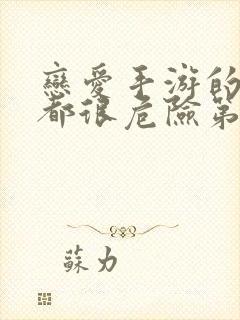 戀愛手游的
都很危險第
蘇力